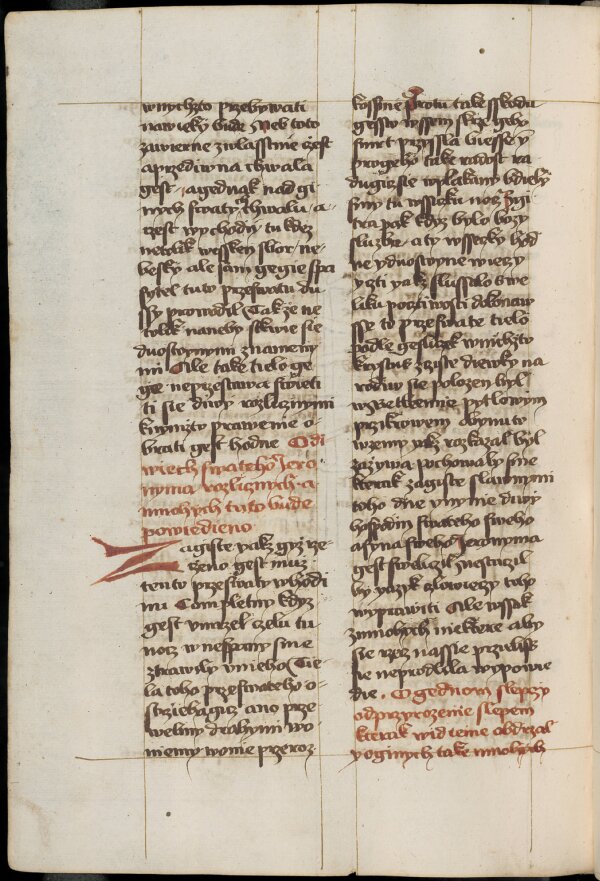 wnychzto przebywati
nawieky bude Neb toto
zawierne zwlasstnie czest
aprzediwna chwala
gest ·agednak nad gi
nych swaty chwalu ·a·
czest wychodij tu kdez
netolik wessken sbor ne
besky ale sam gegie spa
sytel tuto przeswatu du
ssy prowodil Tak ze ne
tolik naneby skwie sie
duostoynymi znameny
mi Ale take tielo ge
gie neprzestawa swieti
ti sie diwy rozlicznymi
kimizto prawenie o
brati gest hodne O di
wiech swateho Jero
nyma rozlicznych a
mnohych tuto bude
powiedieno
Zagiste yakz gyz rze
czeno gest muz
tento przeswaty whodi
nu Completny kdyz
gest umrzel czelu tu
noc w nesspany sme
ztrawily vnieho Tie
la toho przeswateho o
strziehagicz ano prze
welmy drahymi wo
niemy wonie przeroz
kossne Protu take sskodu
gessto wssem skrze geho
smrt przissla biesse y
progeho take radost ra
dugicz sie wylakany bdiely
smy tu wssiczku noc Gi
tra pak kdyz bylo bozy
sluzbu a ty wsseczky hod
ne yduostoyne wieczy
yczti yakz slussalo swe
liku pocztiwosti dokonaw
sse to przeswate tielo
podle geslicek wnichzto
krystus zczisté diewky na
rodiw sie polozen byl
w Bethlemie pytlowym
przikrowem obynuto
wzemy yakz rozkazal byl
zazywa pochowaly sme
kterak zagiste slawnymi
toho dne ynynie diwy
hospodin swateho sweho
a syna sweho Jeronyma
gest swelicil nestaczil
by yazyk czlowieczy toho
wyprawiti Ale wssak
zmnohych niektere aby
sie rzecz nassie przieliss
sie neprodlila wypowie
die · O gednom slepczy
odprzyrozenie slepem
kterak wid'enie obdrzal
y oginych take mnohych